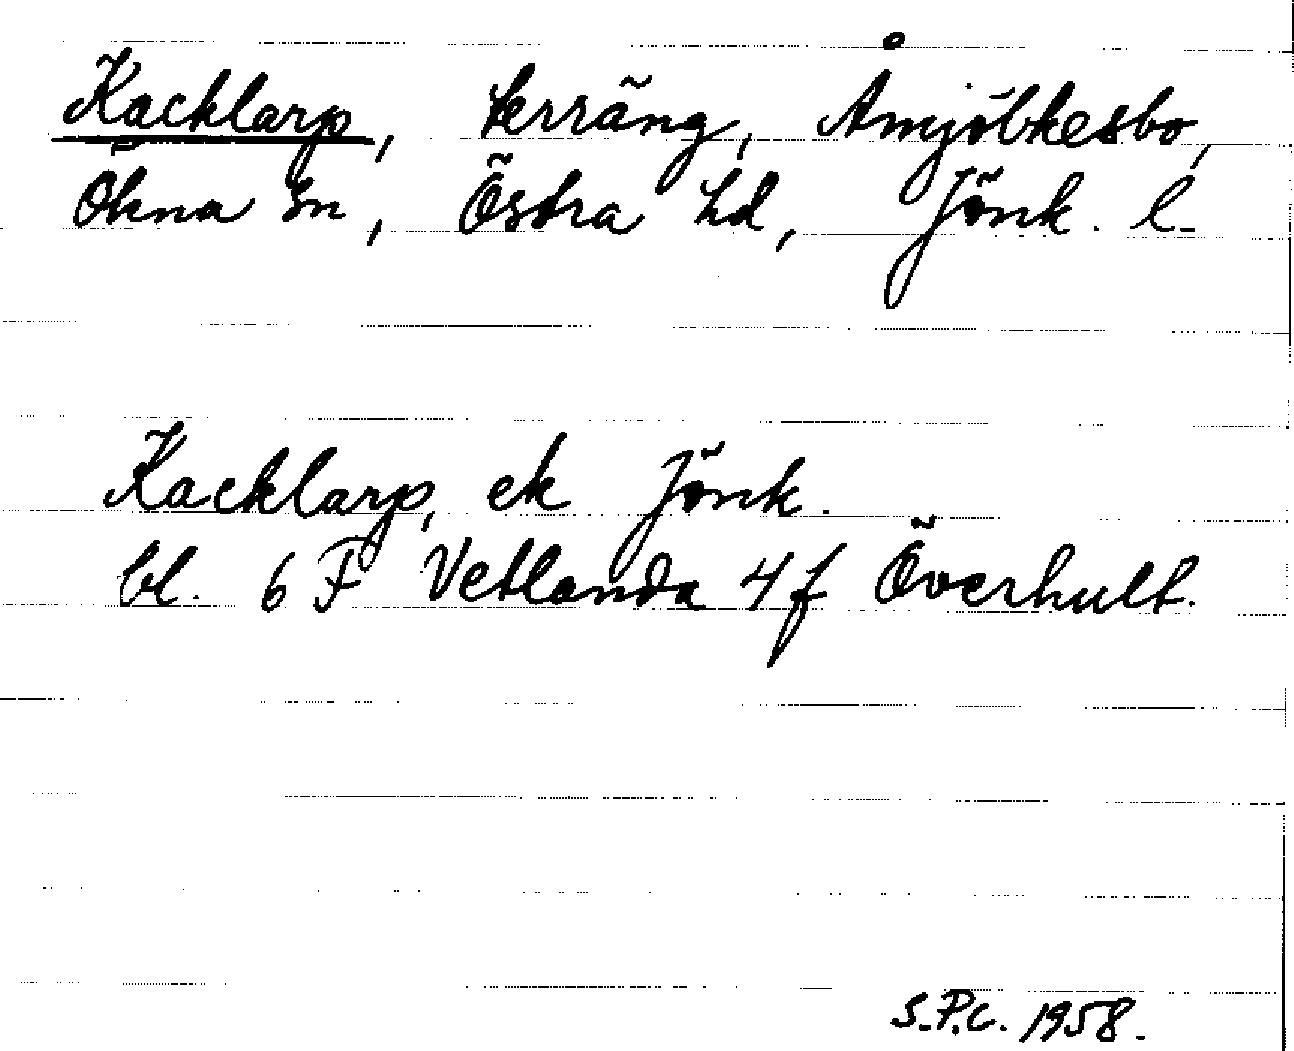 Kacklarp, terräng, Åmjölkesbo,
Ökna sn, Östra hd, Jönk. l.
Kacklarp, ek Jönk.
bl. 6 F Vetlanda 4 f Överhult.
S.P.C. 1958.